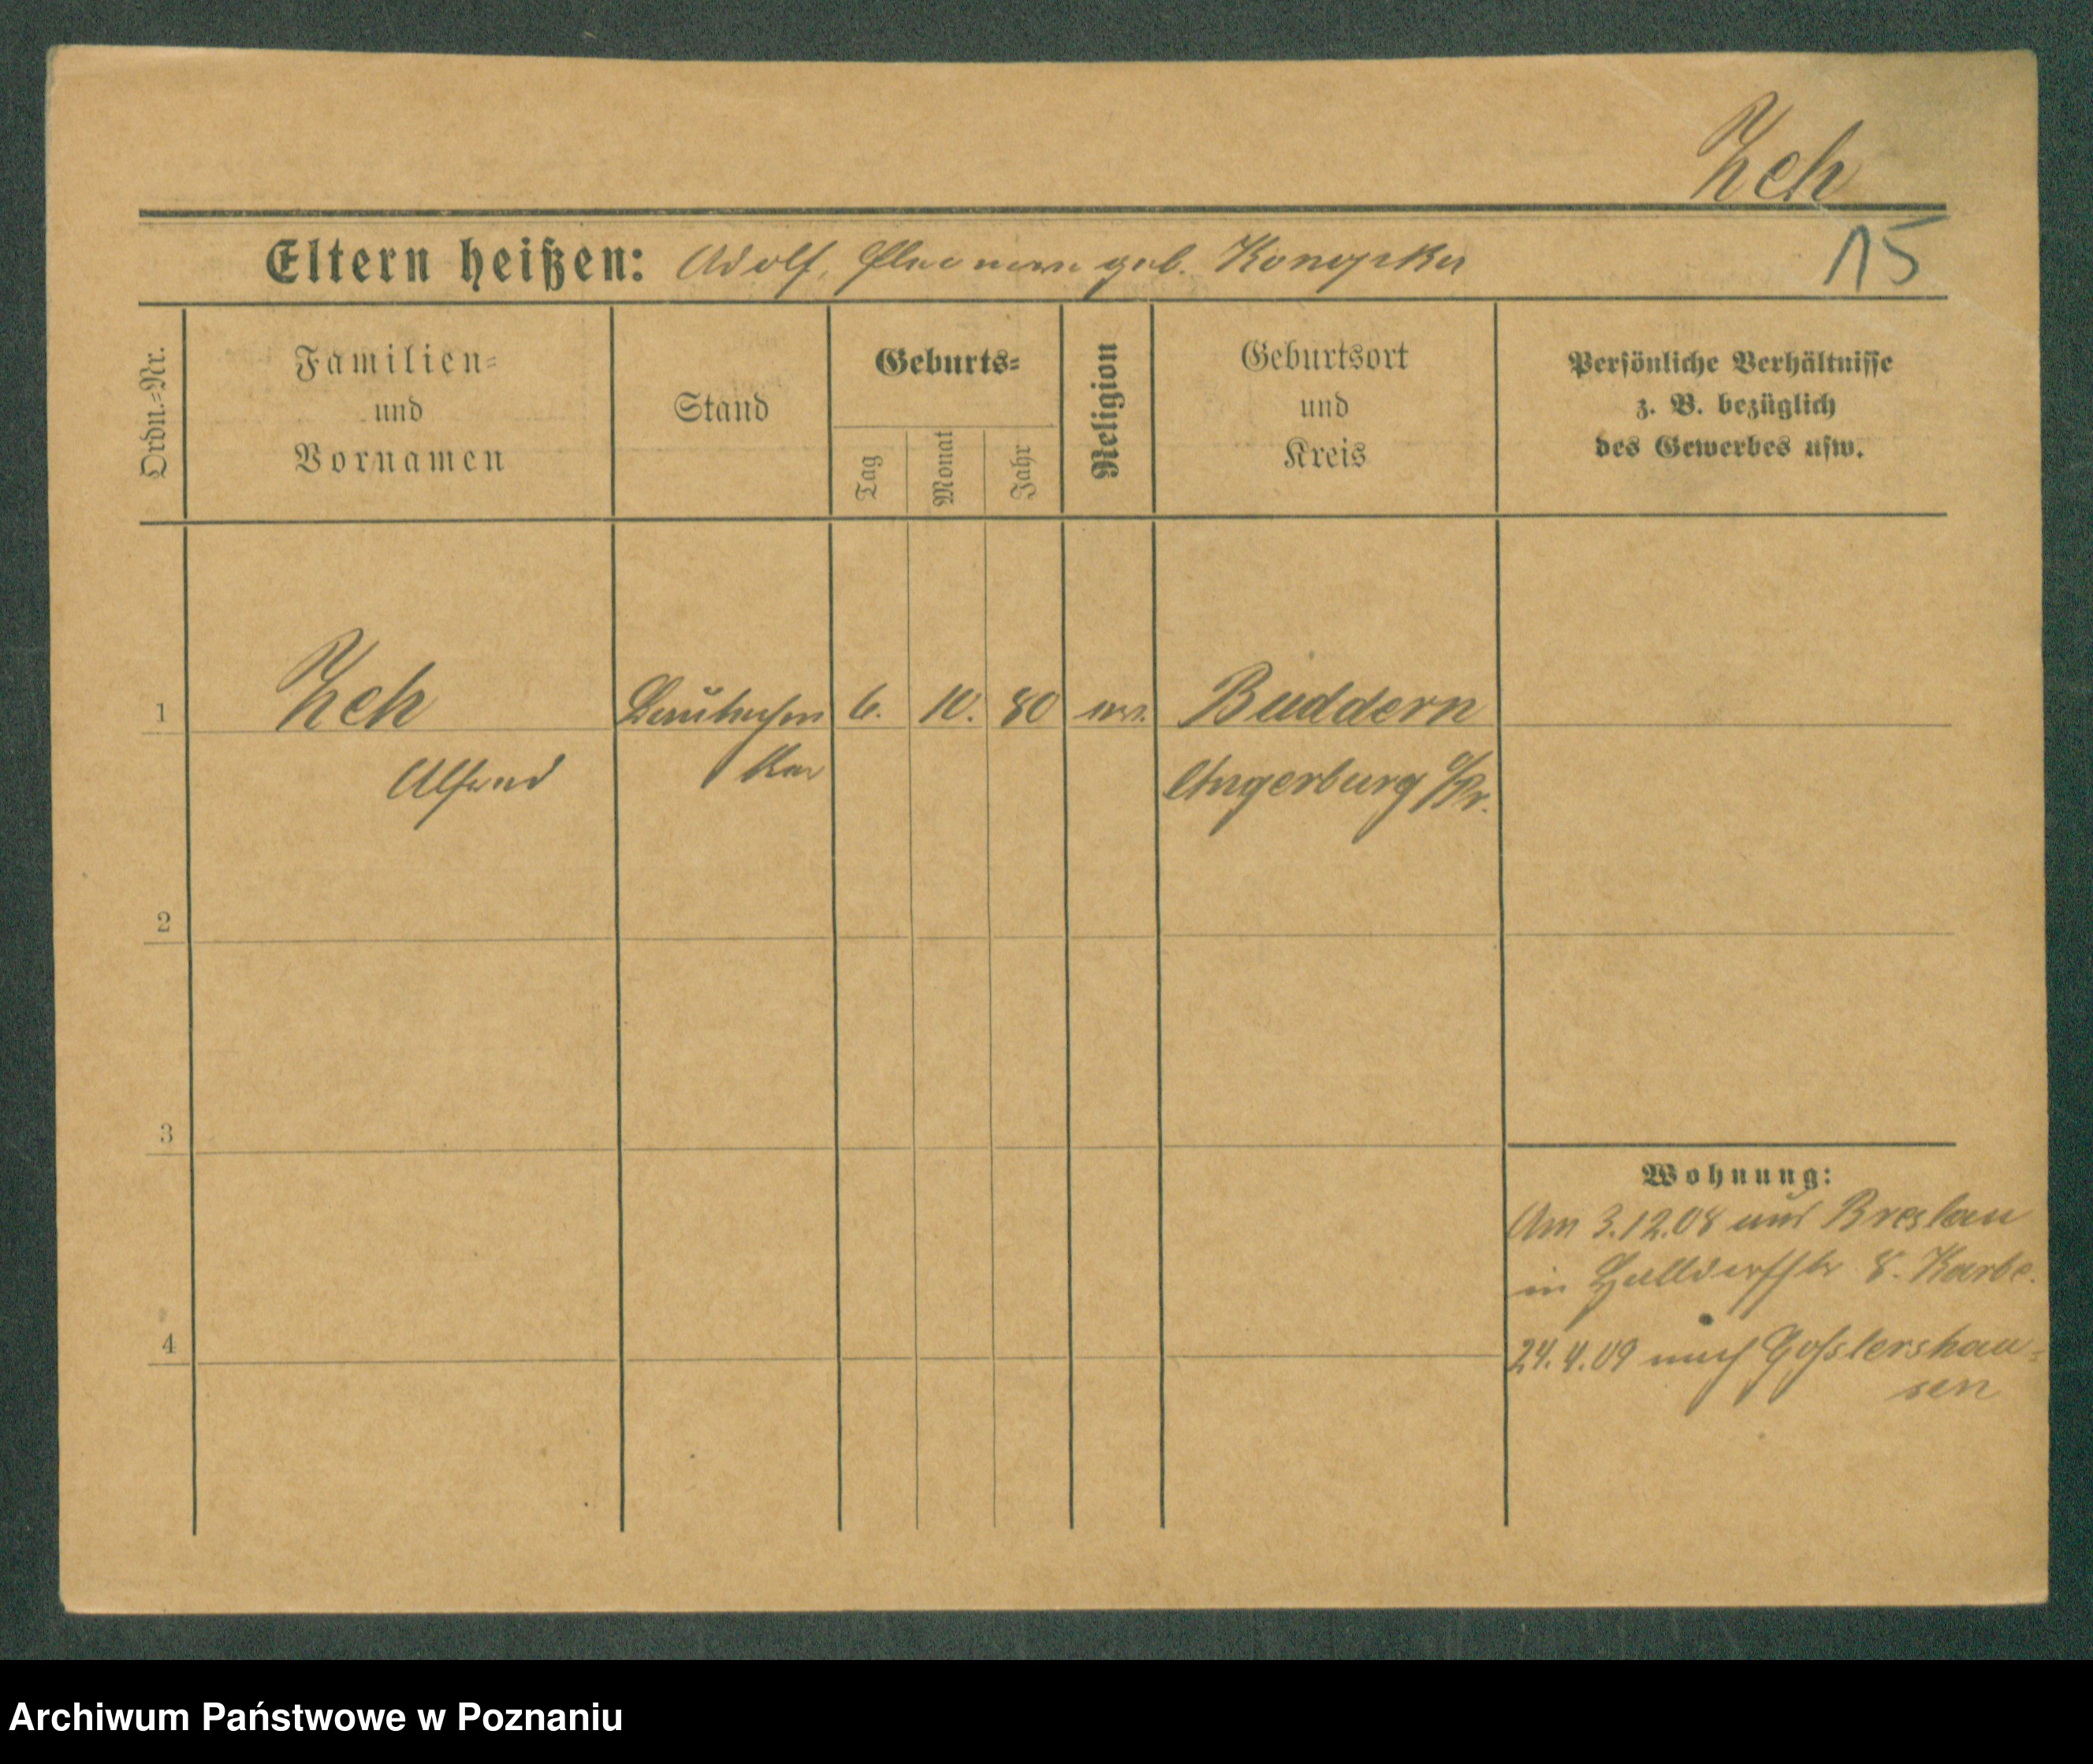 Zeh
15
Eltern heißen: Adolf, geb. Konopka
Ordn.=Nr.
Familien=
und
Vornamen
Stand
Geburts=
Tag
Monat
Jahr
Religion
Geburtsort
und
Kreis
Persönliche Verhältnisse
z. B. bezüglich
des Gewerbes usw.
1 Zeh Bautechni 6. 10. 80 ev. Buddern
Alfred ker Angerburg O/Pr.
2
3
Wohnung:
Am 3.12.08 aus Breslau
in 8. Karbe.
4
24.4.09 nach Goßlershau=
sen
Archiwum Państwowe w Poznaniu